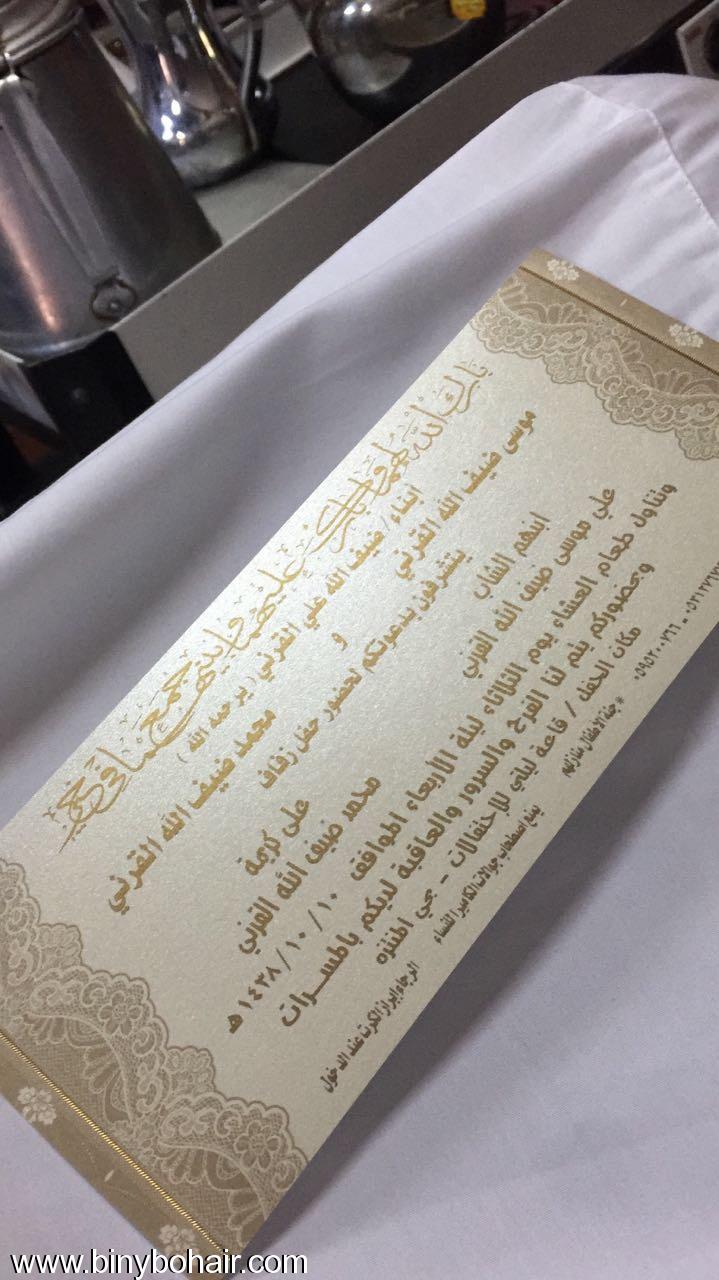 بارك الله لهما وبارك عليهما وجمع بينهما في خير
أبناء / ضيف الله علي القرني ( يرحمه الله )
موسى ضيف الله القرني و محمد ضيف الله القرني
يتشرفون بدعوتكم لحضور حفل زفاف
ابنهم الشاب على كريمة
علي موسى ضيف الله القرني محمد ضيف الله القرني
وتناول طعام العشاء يوم الثلاثاء ليلة الأربعاء الموافق ١٠ / ١٠ / ١٤٣٨ هـ
وبحضوركم يتم لنا الفرح والسرور والعاقبة لديكم بالمسرات
مكان الحفل / قاعة ليالي للإحتفالات - بحي المنتزه
* جنة الاطفال منازلهم يمنع اصطحاب جوالات الكاميرا للنساء الرجاء إبراز الكرت عند الدخول
www.binybohair.com